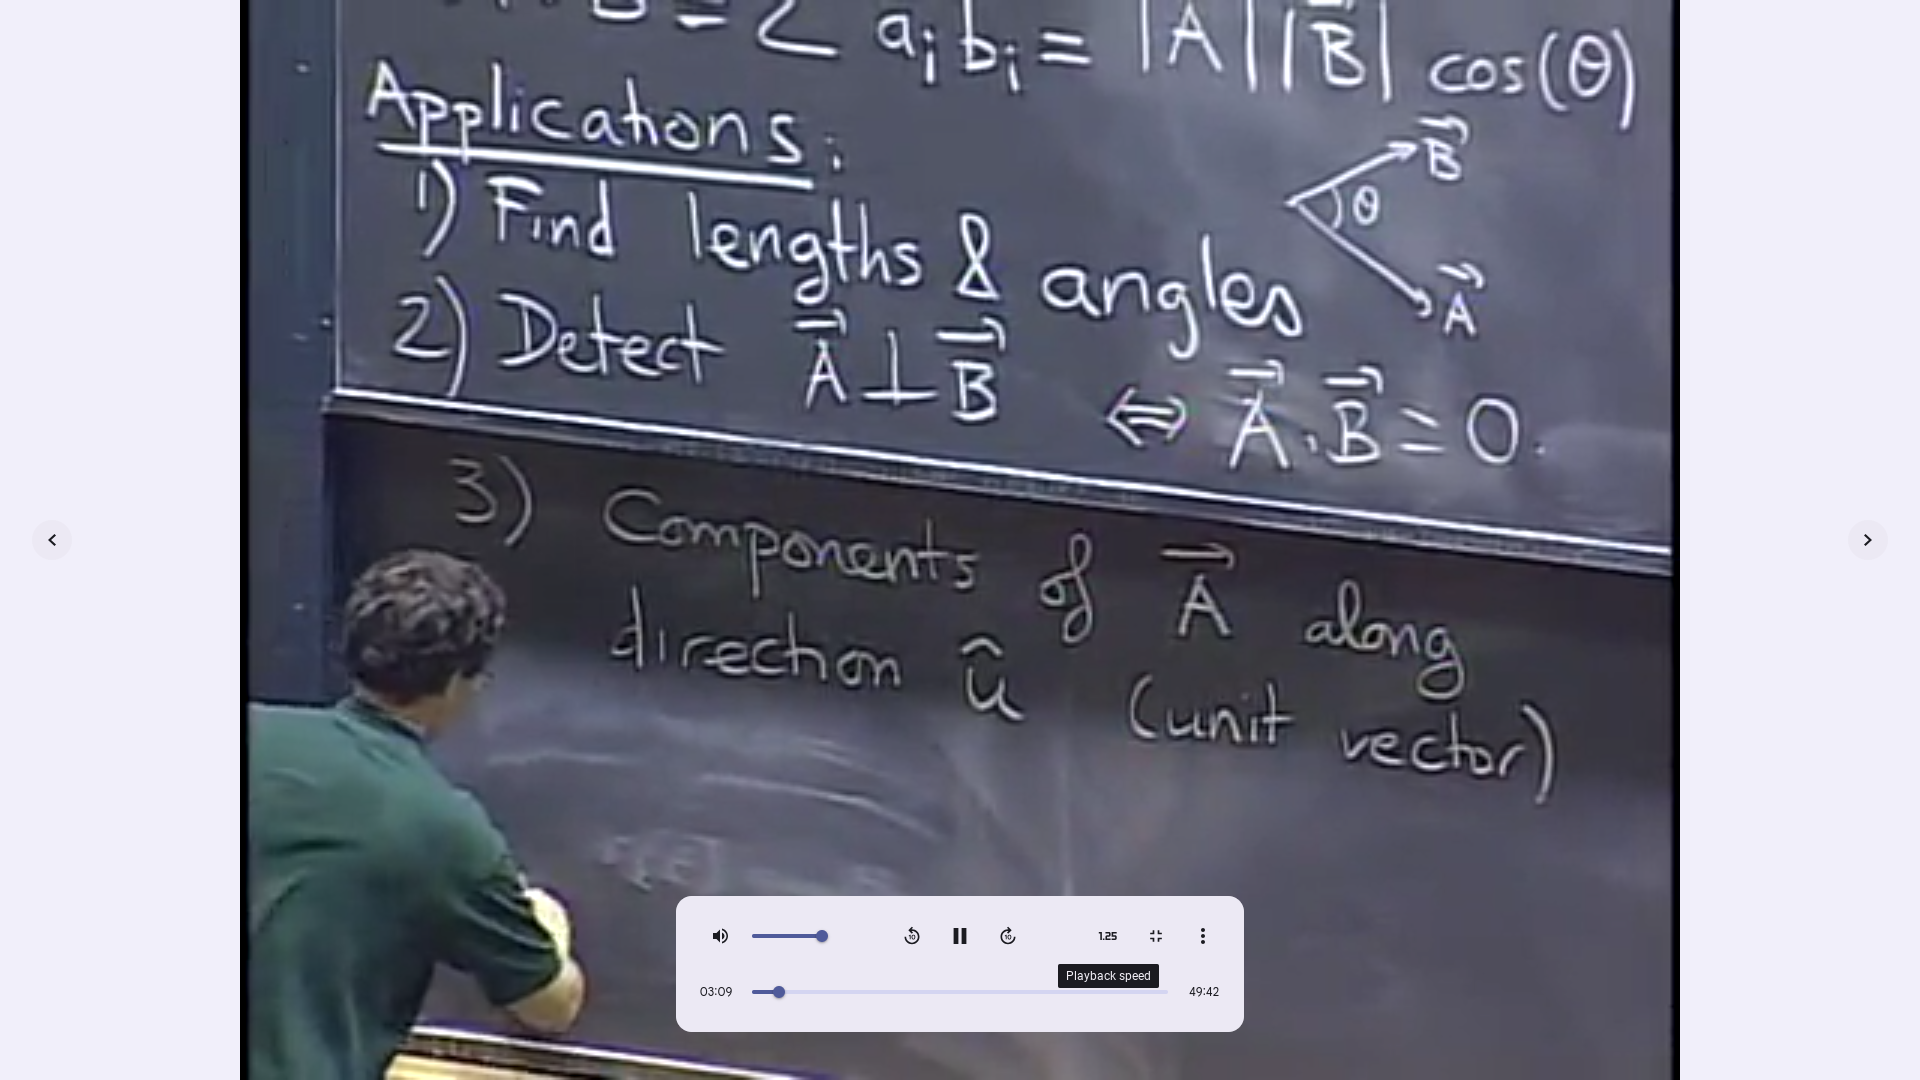 B = Σ aᵢbᵢ = |A||B⃗| cos(θ)
Applications:
B⃗
θ
A⃗
1) Find lengths & angles
2) Detect A⃗ ⊥ B⃗ ⇔ A⃗ · B⃗ = 0.
3) Components of A⃗ along
direction û (unit vector)
10
10
1.25
Playback speed
03:09
49:42